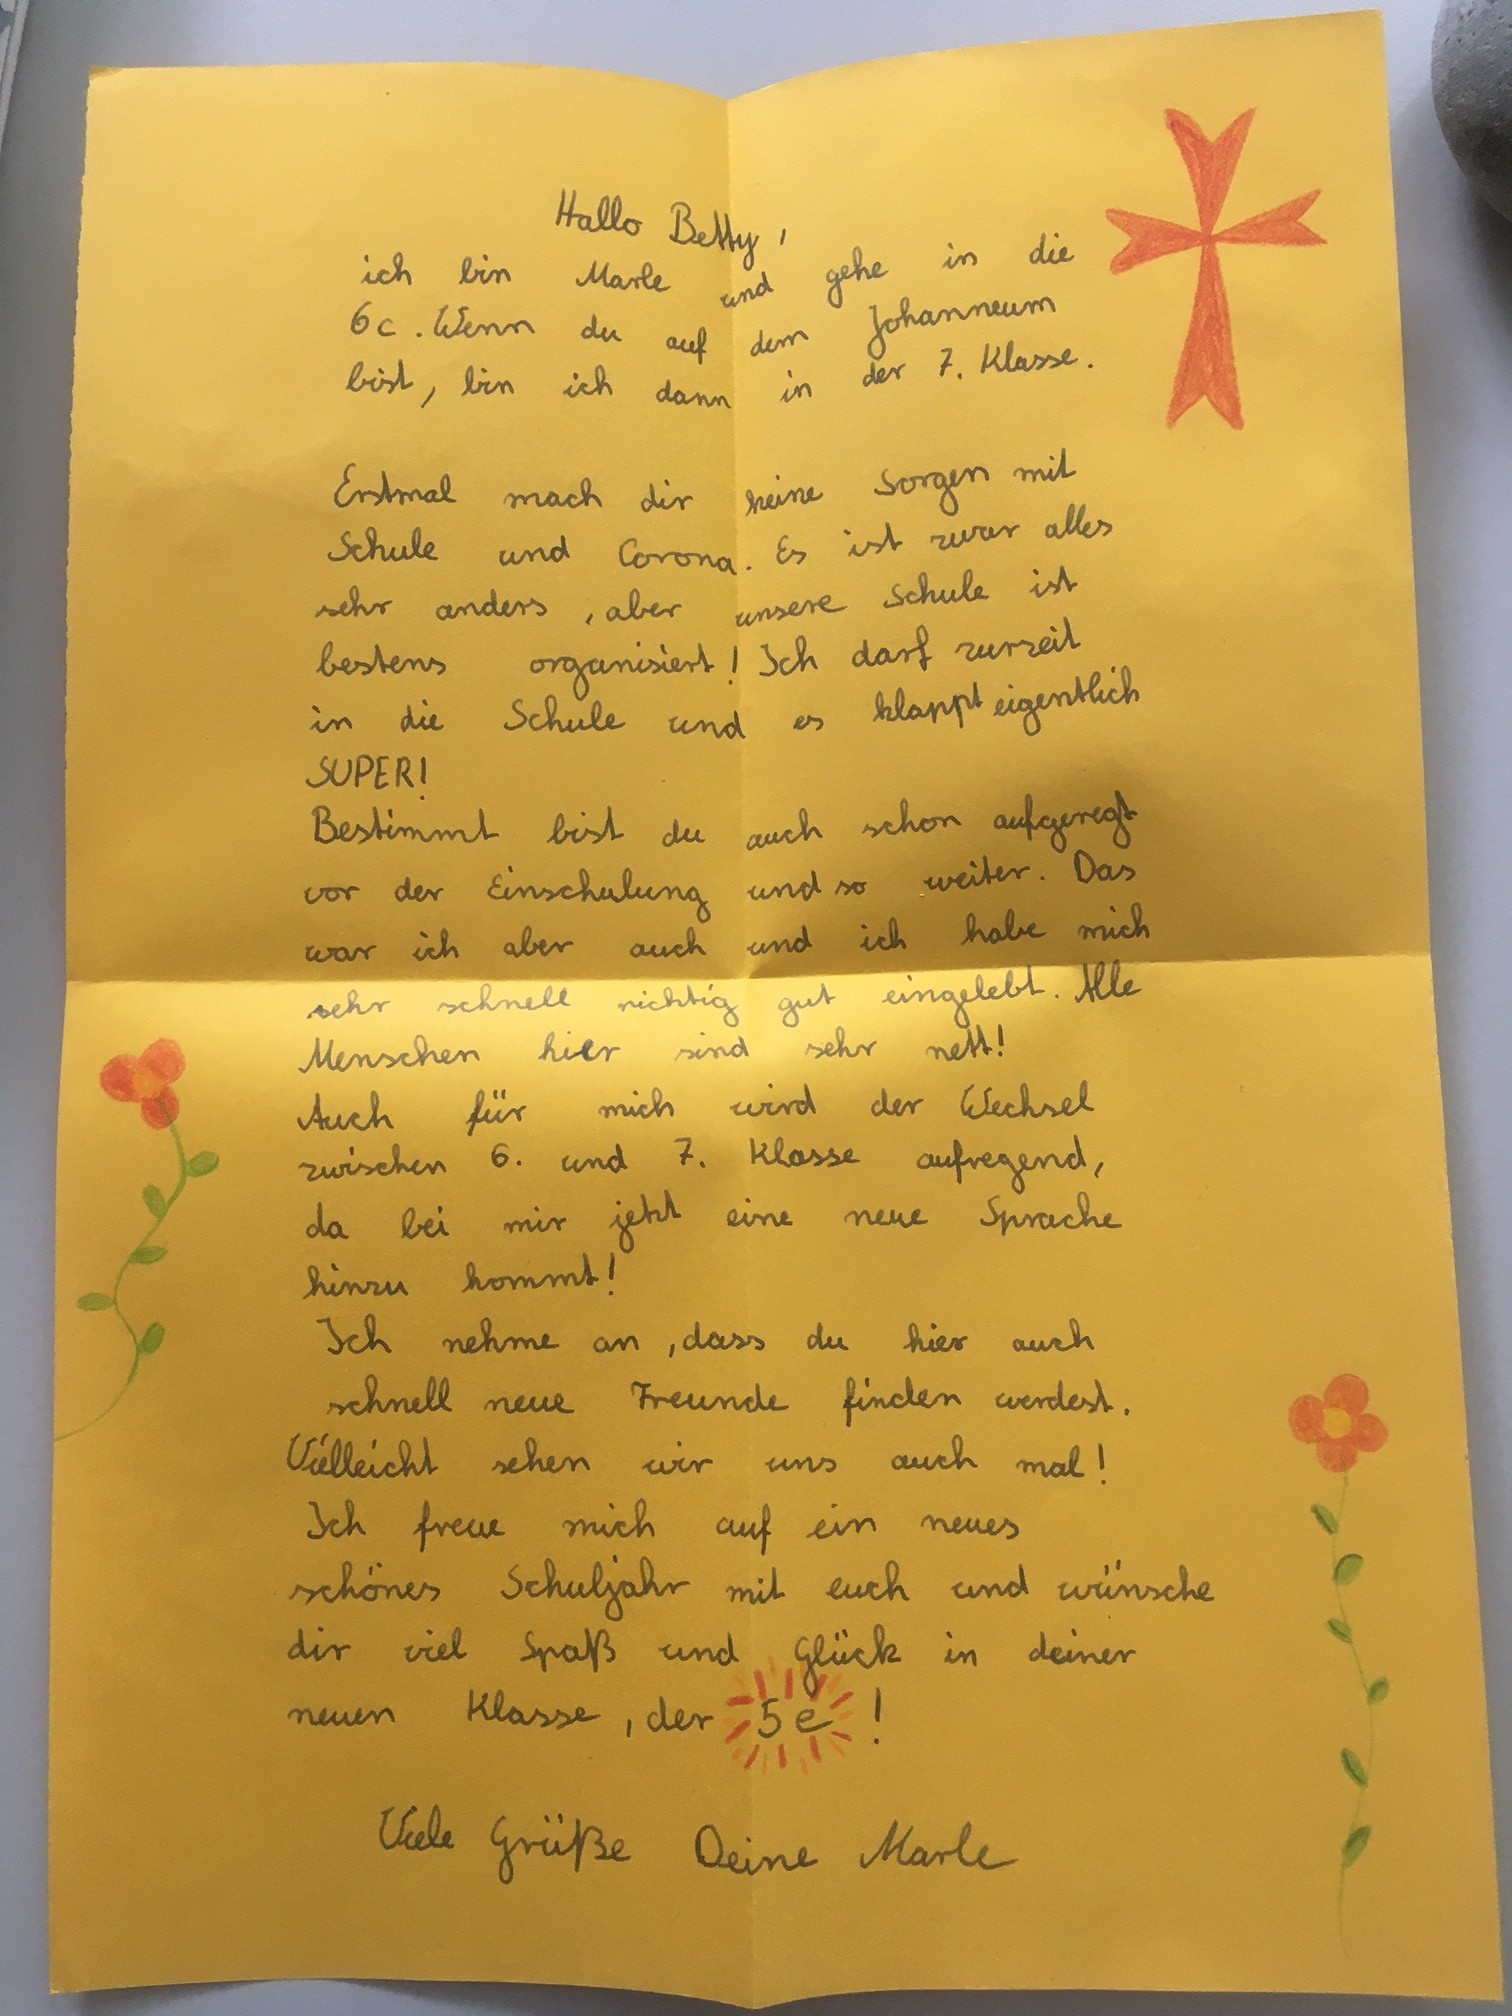 Hallo Betty,
ich bin Marle und gehe in die
6c. Wenn du auf dem Johanneum
bist, bin ich dann in der 7. Klasse.
Erstmal mach dir keine Sorgen mit
Schule und Corona. Es ist zwar alles
sehr anders, aber unsere Schule ist
bestens organisiert! Ich darf zurzeit
in die Schule und es klappt eigentlich
SUPER!
Bestimmt bist du auch schon aufgeregt
vor der Einschulung und so weiter. Das
war ich aber auch und ich habe mich
sehr schnell richtig gut eingelebt. Alle
Menschen hier sind sehr nett!
Auch für mich wird der Wechsel
zwischen 6. und 7. Klasse aufregend,
da bei mir jetzt eine neue Sprache
hinzu kommt!
Ich nehme an, dass du hier auch
schnell neue Freunde finden werdest.
Vielleicht sehen wir uns auch mal!
Ich freue mich auf ein neues
schönes Schuljahr mit euch und wünsche
dir viel Spaß und Glück in deiner
neuen Klasse, der 5e!
Viele Grüße Deine Marle